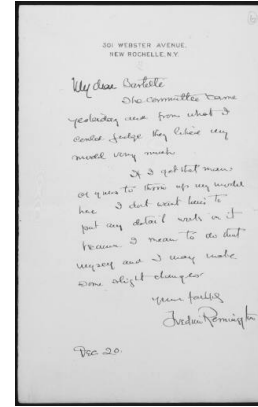 301 WEBSTER AVENUE.
NEW ROCHELLE, N.Y.
My dear Bartlett
The committee came
yesterday and from what I
could judge they liked my
model very much.
If I get that man
of yours to throw up my model
here I dont want him to
put any detail work on it
because I mean to do that
myself and I may make
some slight changes
yours faithfully
Frederic Remington
Dec 20.